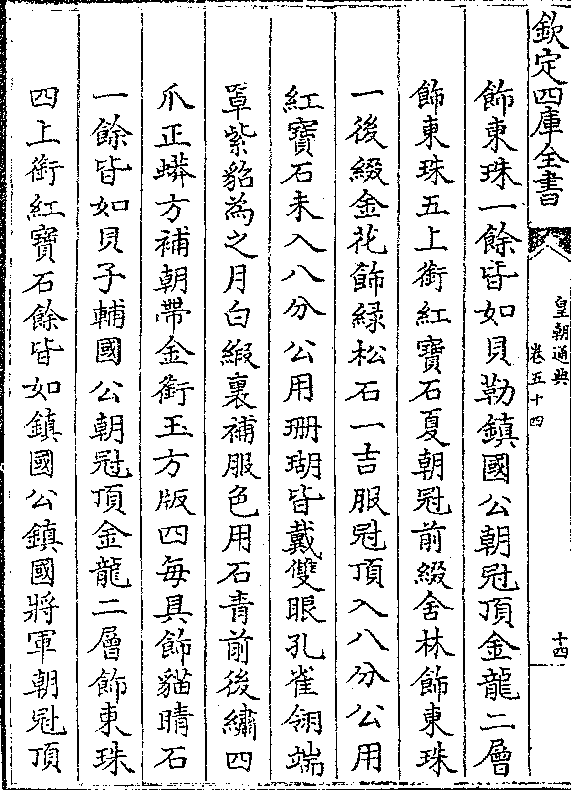 欽定四庫全書
皇朝通典
卷五十四
十四
飾東珠一餘皆如貝勒鎮國公朝冠頂金龍二層
飾東珠五上銜紅寶石夏朝冠前綴舍林飾東珠
一後綴金花飾緑松石一吉服冠頂入八分公用
紅寶石未入八分公用珊瑚皆戴雙眼孔雀翎端
罩紫貂為之月白緞裏補服色用石青前後繡四
爪正蟒方補朝帶金銜玉方版四每具飾貓睛石
一餘皆如貝子輔國公朝冠頂金龍二層飾東珠
四上銜紅寶石餘皆如鎮國公鎮國將軍朝冠頂